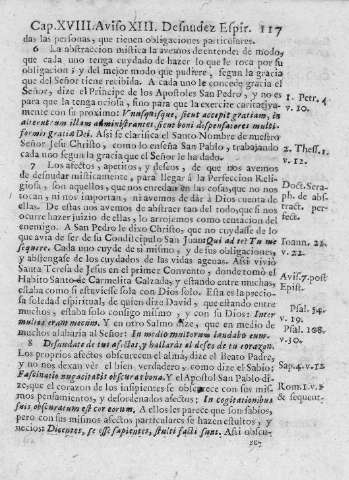 Cap.XVIII. Aviso XIII. Desnudez Espir. 117
das las personas, que tienen obligaciones particulares.
6 La abstraccion mistica la avemos de entender de modo,
que cada uno tenga cuydado de hazer lo que le toca por su
obligacion; y del mejor modo que pudiere, segun la gracia
que del Señor tiene recibida. A cada uno le concede gracia el
Señor, dize el Principe de los Apostoles San Pedro, y no es
para que la tenga ociosa, sino para que la exercite caritativa-
mente con su proximo: Vnusquisque, sicut accepit gratiam, in
alterutrum illam administrantes, sicut boni dispensatores multi-
formis gratia Dei. Assi se clarifica el Santo Nombre de nuestro
Señor Jesu Christo, como enseña San Pablo, trabajando
cada uno segun la gracia que el Señor le ha dado.
1. Petr. 4.
v. 10.
2. Thess. 1.
v. 12.
7 Los afectos, apetitos, y deseos, de que nos avemos
de desnudar misticamente, para llegar à la Perfeccion Reli-
giosa, son aquellos, que nos enredan en las cosas, que no nos
tocan, ni nos importan, ni avemos de dàr à Dios cuenta de
ellas. De estas nos avemos de abstraer tan del todo, que si nos
ocurre hazer juizio de ellas, lo arrojemos como tentacion del
enemigo. A San Pedro le dixo Christo, que no cuydasse de lo
que avia de ser de su Condiscipulo San Juan: Quid ad te? Tu me
sequere. Cada uno cuyde de sì mismo, y de sus obligaciones,
y abstengase de los cuydados de las vidas agenas. Assi viviò
Santa Teresa de Jesus en el primer Convento, donde tomò el
Habito Santo de Carmelita Calzada, y estando entre muchas,
estaba como si estuviesse sola con Dios solo. Esta es la precio-
sa soledad espiritual, de quien dize David, que estando entre
muchos, estaba solo consigo mismo, y con su Dios: Inter
multos eram mecum. Y en otro Salmo dize, que en medio de
muchos alabaria al Señor: In medio multorum laudabo eum.
Doct. Sera-
ph. de abs-
tract. per-
fect.
Ioann. 21.
v. 22.
Avis. 7. post
Epist.
Psal. 54.
v. 19.
Psal. 108.
v. 30.
8 Desnudate de tus afectos, y hallaràs el deseo de tu corazon.
Los proprios afectos obscurecen el alma, dize el Beato Padre,
y no nos dexan vèr el bien verdadero, como dize el Sabio:
Fascinatio nugacitatis obscurat bona. Y el Apostol San Pablo di-
ze, que el corazon de los insipientes se obscurece con sus mis-
mos pensamientos, y desordenados afectos: In cogitationibus
suis, obscuratum est cor eorum. A ellos les parece que son sabios,
pero con sus mismos afectos particulares se hazen estultos, y
necios: Dicentes, se esse sapientes, stulti facti sunt. Assi obscu-
Sap. 4. v. 12
Rom. 1. v. 2
& sequent.